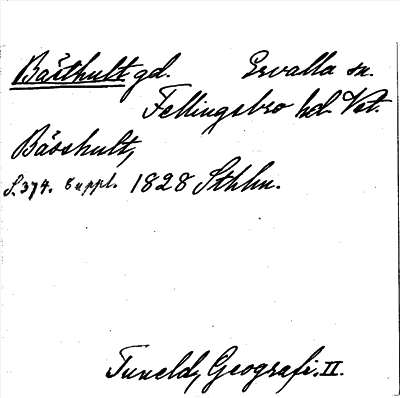 Bästhult gd. Ervalla sn.
Fellingsbro hd. Vst.
Bäöshult,
S. 374. Suppl. 1828 Sthlm.
Tuneld, Geografi, II.